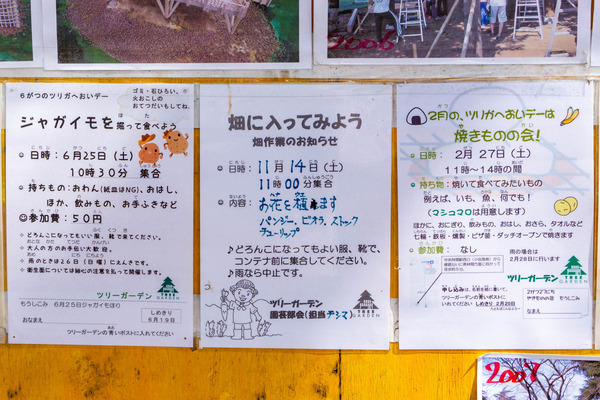 2006
6がつのツリガへおいデー
ゴミ・石ひろい、
火おこしの
おてつだいもしてね。
ジャガイモを掘って食べよう
日時：6月25日（土）
10時30分 集合
持ちもの：おわん（紙皿はNG）、おはし、
ほか、飲みもの、お手ふきなど
参加費：50円
・どろんこになってもいい服、靴で来てください。
・大人の方のお手伝い大歓迎、なし
・雨のときは26日（日曜）にえんきです。
・衛生面については細心の注意を払って開催します。
ツリーガーデン
TREE GARDEN
もうしこみ 6月25日ジャガイモほり
しめきり
6月19日
おなまえ
ツリーガーデンの青いポストに入れてください
畑に入ってみよう
畑作業のお知らせ
日時：11月14日（土）
11時00分集合
内容：お花を種えます
パンジー、ビオラ、ストック
チューリップ
♪どろんこになってもよい服、靴で、
コンテナ前に集合してください。
♪雨なら中止です。
ツリーガーデン
園芸部会（担当 デシマ）
TREE GARDEN
2月の、ツリガへおいデーは
焼きものの会！
日時： 2月 27日（土）
11時～14時の間
持ち物：焼いて食べてみたいもの
例えば、いも、魚、何でも！
（マシュマロは用意します）
ほかに、おにぎり、飲みもの、おはし、おさら、タオルなど
七輪・鉄板・燻製・ピザ釜・ダッチオーブンで焼きます
参加費： なし
雨の場合は
2月28日に行います
ツリーガーデン
TREE GARDEN
申し込みは、名前を紙に書いて、
ツリーガーデンの青いポストに入
れてください しめきり 2月20日
2がつ27にち
やきものの会 もうしこみ
なまえ
2007